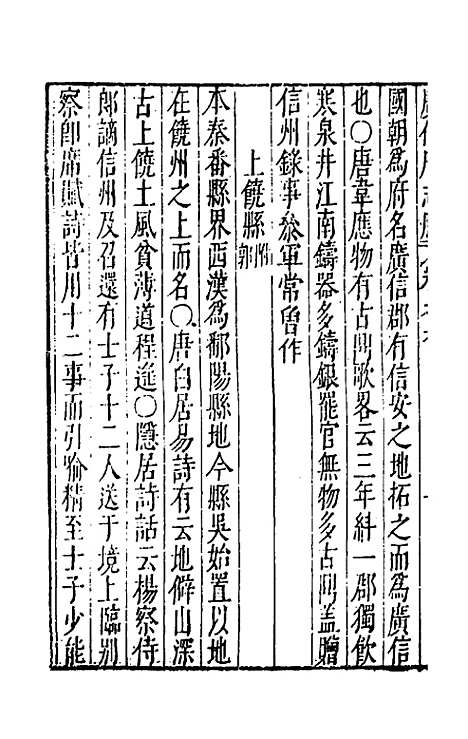 國朝為府名廣信郡有信安之地拓之而為廣信
也○唐韋應物有古鼎歌畧云三年糾一郡獨飲
寒泉井江南鑄器多鑄銀罷官無物多古鼎蓋贈
信州錄事叅軍常曾作
上饒縣附郭
本秦番縣界西漢為鄱陽縣地今縣吳始置以地
在饒州之上而名○唐白居易詩有云地僻山深
古上饒土風貧薄道程遙○隱居詩話云楊察侍
郎謫信州及召還有士子十二人送于境上臨别
察即席賦詩皆用十二事而引喻精至士子少能